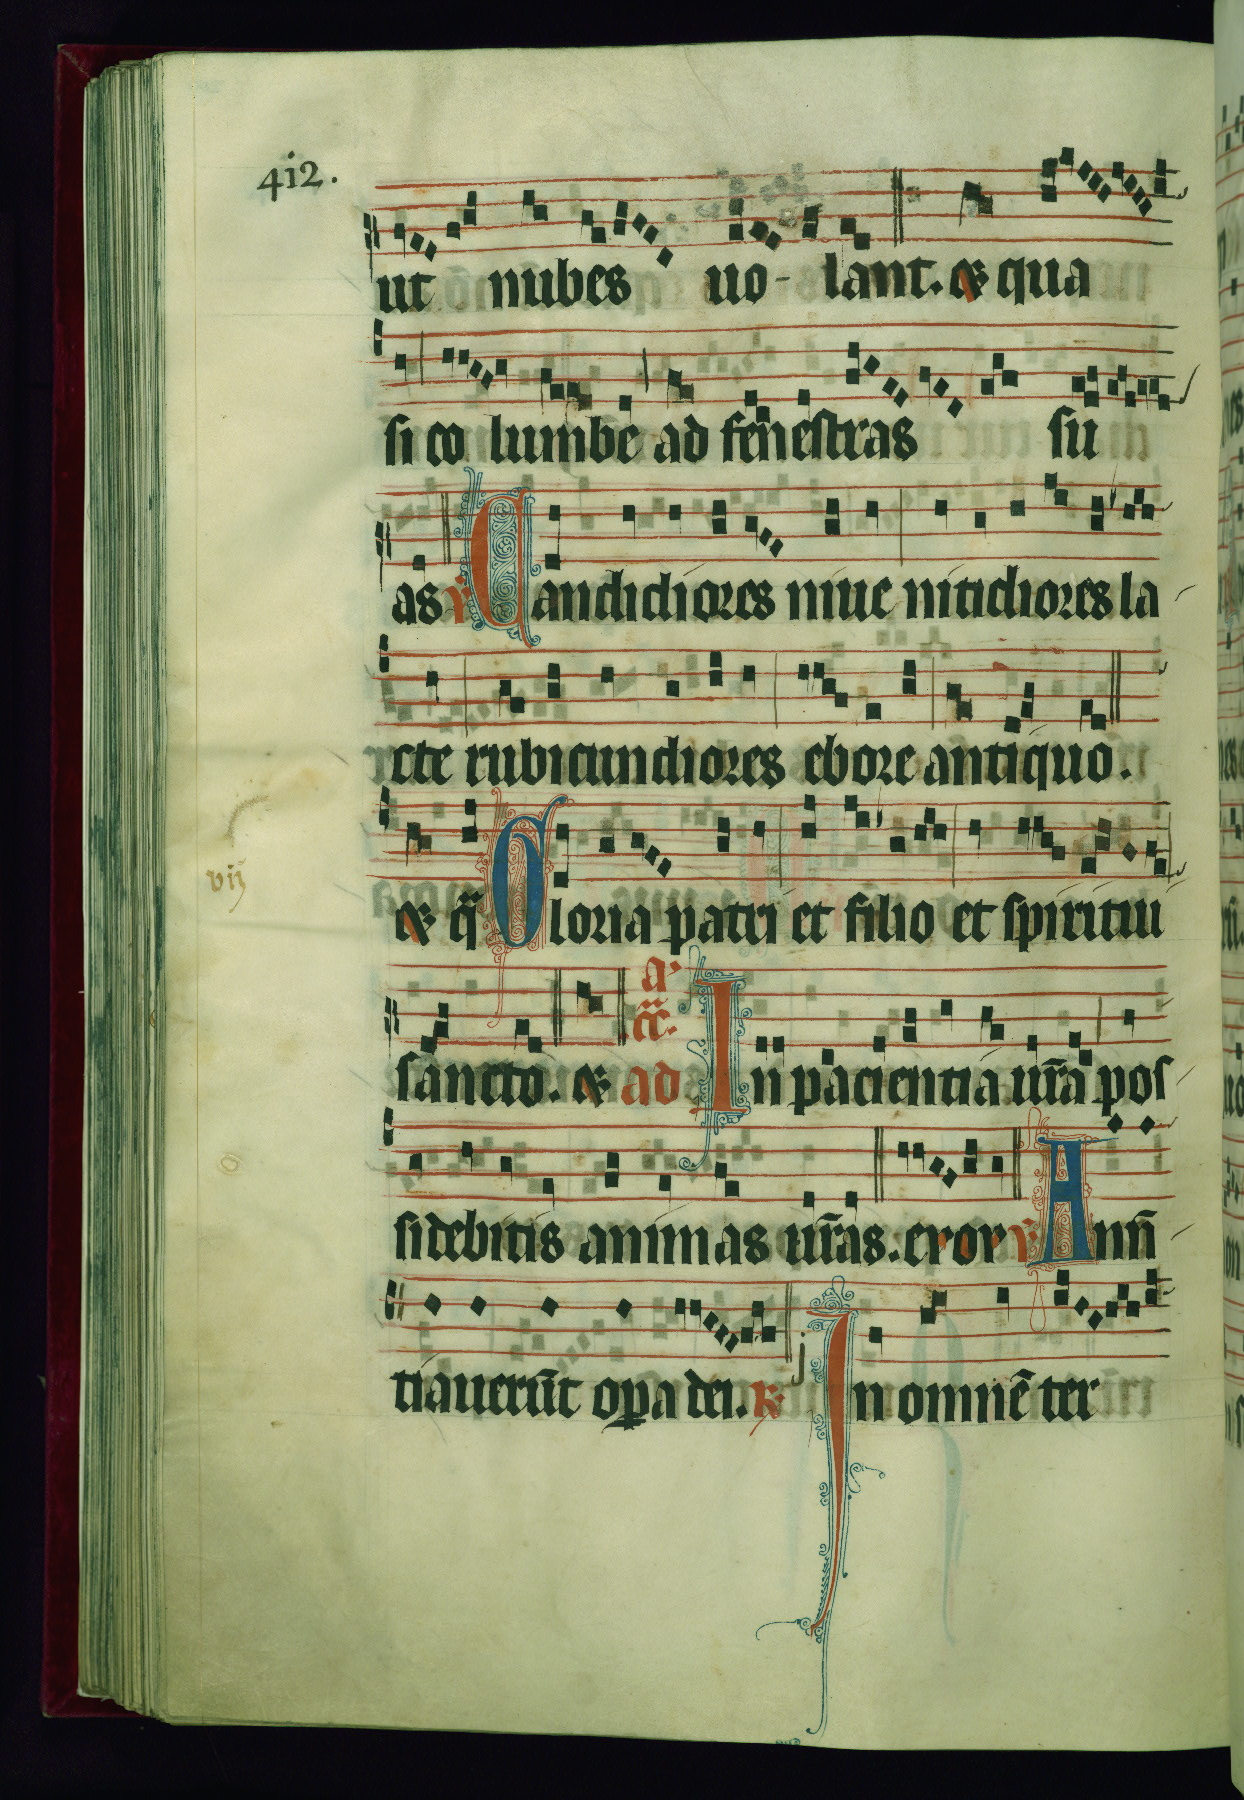 412.
ut nubes uo- lant. et qua
si co lumbe ad fenestras su
as v Candidiores niue nitidiores la
cte rubicundiores ebore antiquo.
et q̃ Gloria patri et filio et spiritui
vij
a.
cc̃.
sancto. et ad In pacientia ur̃a pos
sidebitis animas ur̃as. evovv Anñ
tiauerũt opa dei. R. In omnẽ ter